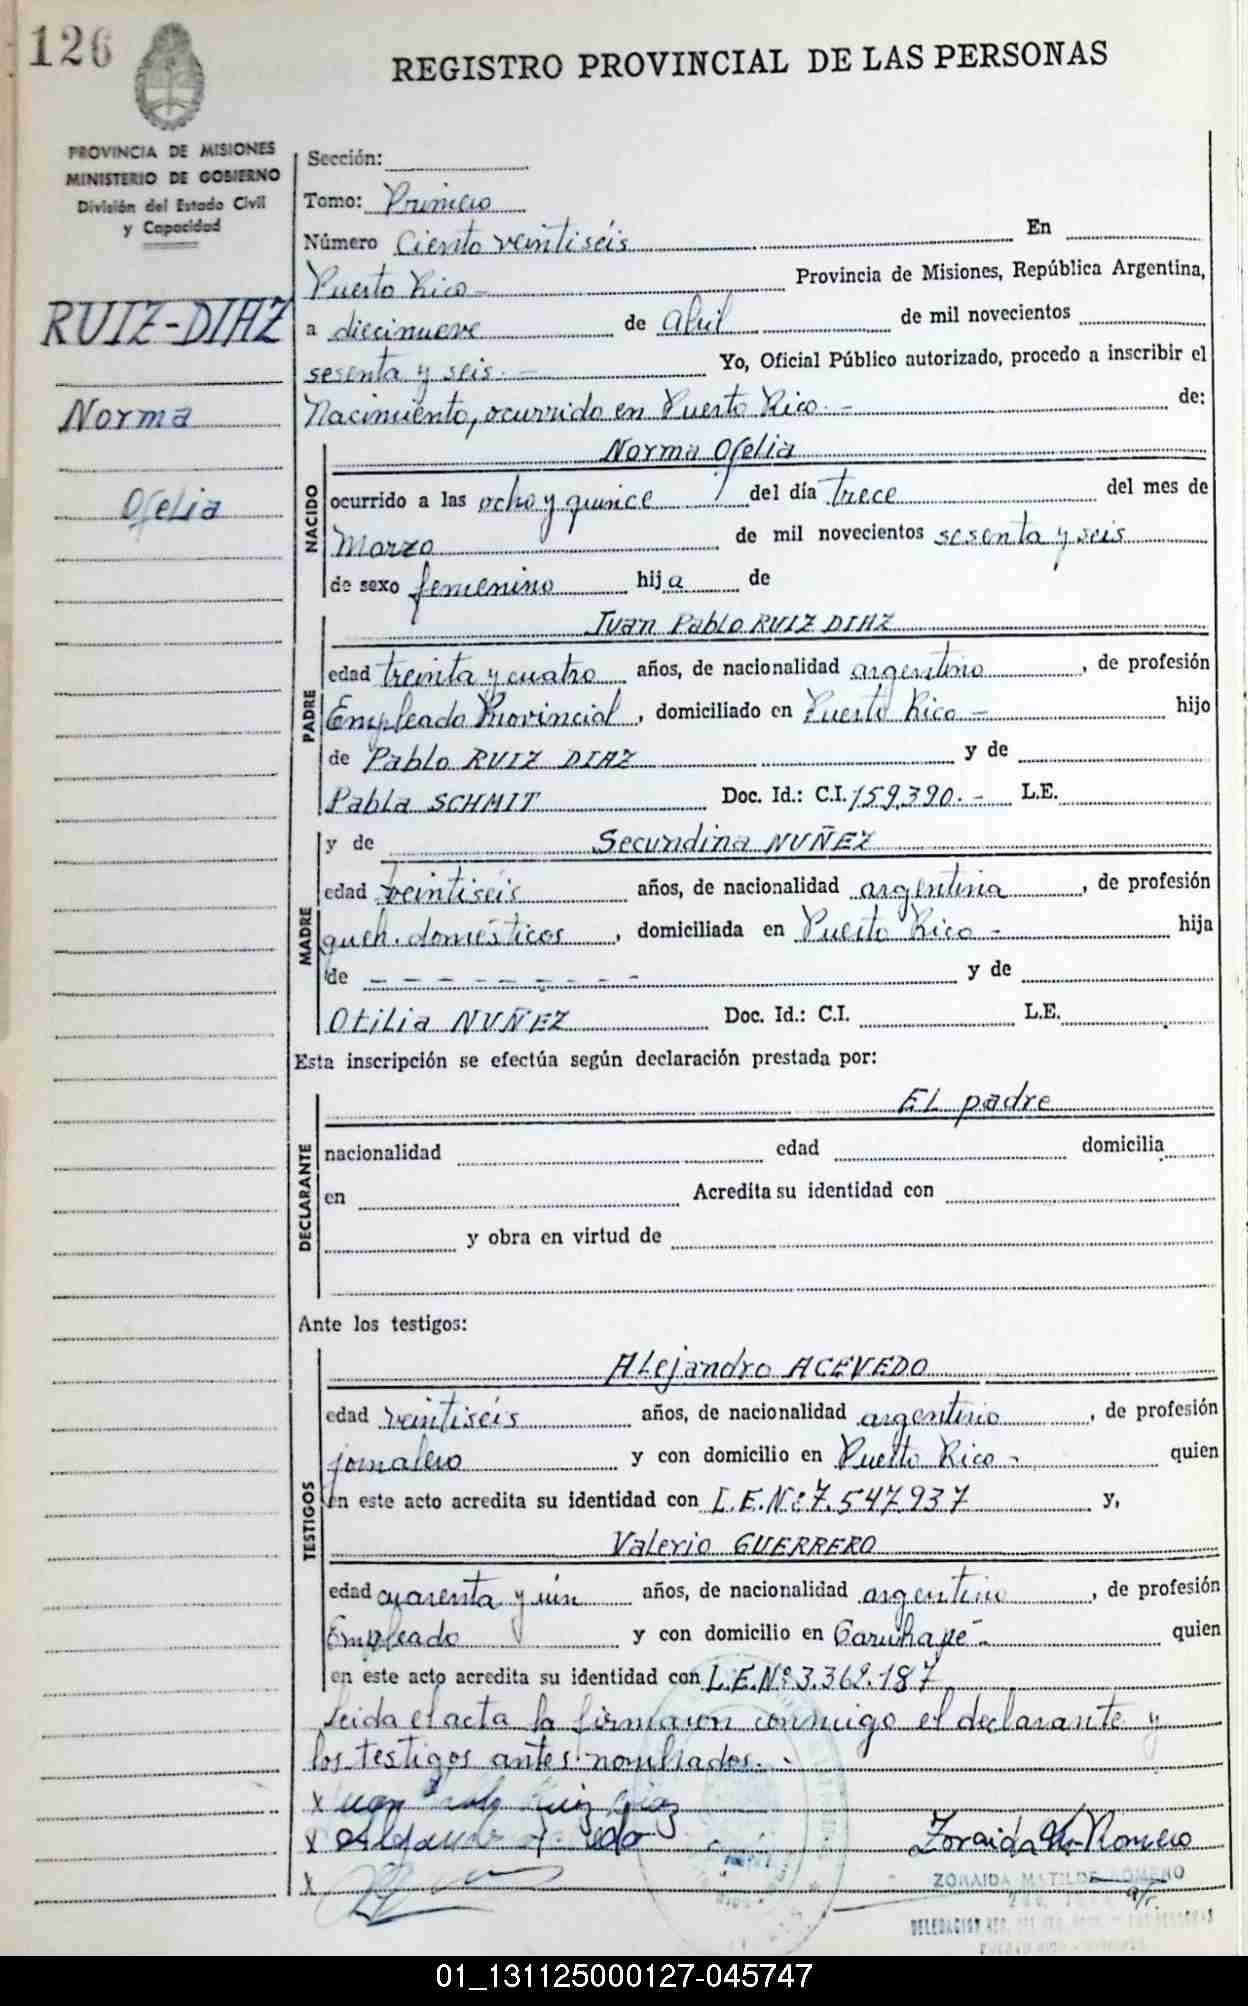 126
REGISTRO PROVINCIAL DE LAS PERSONAS
PROVINCIA DE MISIONES
MINISTERIO DE GOBIERNO
División del Estado Civil
y Capacidad
RUIZ-DIAZ
Norma
Ofelia
Sección:
Tomo: Primero
Número Ciento veintiseis En
Puerto Rico - Provincia de Misiones, República Argentina,
a diecinueve de abril de mil novecientos
sesenta y seis. - Yo, Oficial Público autorizado, procedo a inscribir el
Nacimiento, ocurrido en Puerto Rico. - de:
NACIDO
Norma Ofelia
ocurrido a las ocho y quince del día trece del mes de
Marzo de mil novecientos sesenta y seis
de sexo femenino hija de
PADRE
Juan Pablo RUIZ DIAZ
edad treinta y cuatro años, de nacionalidad argentino, de profesión
Empleado Provincial, domiciliado en Puerto Rico - hijo
de Pablo RUIZ DIAZ y de
Pabla SCHMIT Doc. Id.: C.I. 159.390. - L.E.
MADRE
y de Secundina NUÑEZ
edad veintiseis años, de nacionalidad argentina, de profesión
queh. domésticos, domiciliada en Puerto Rico - hija
de - - - - - - - - y de
Otilia NUÑEZ Doc. Id.: C.I. L.E.
Esta inscripción se efectúa según declaración prestada por:
DECLARANTE
EL padre
nacionalidad edad domicilia
en Acredita su identidad con
y obra en virtud de
Ante los testigos:
TESTIGOS
Alejandro ACEVEDO
edad veintiseis años, de nacionalidad argentino, de profesión
jornalero y con domicilio en Puerto Rico - quien
en este acto acredita su identidad con L.E.Nº 7.547.937 y,
Valerio GUERRERO
edad cuarenta y un años, de nacionalidad argentino, de profesión
Empleado y con domicilio en Garuhapé - quien
en este acto acredita su identidad con L.E.Nº 3.362.187
Leida el acta la firmaron conmigo el declarante y
los testigos antes nombrados. -
x Juan Pablo Ruiz Diaz
x
x
Zoraida M. Romero
ZORAIDA MATILDE ROMERO
01_131125000127-045747